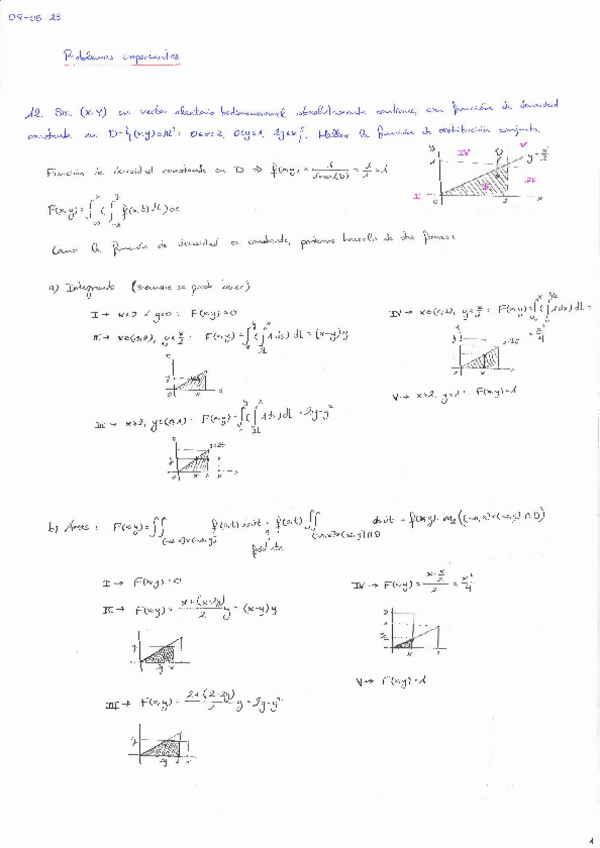 09-05-23
Problemas importantes
12. Sea (X,Y) un vector aleatorio bidimensional absolutamente continuo, con función de densidad
constante en D = {(x,y)∈ℝ²: 0≤x≤2, 0≤y≤1, 2y≤x}. Hallar la función de distribución conjunta.
Función de densidad constante en D ⇒ f(x,y) = 1/área(D) = 1/1 = 1
y
IV
V
y = x/2
I
II
III
x
0
2
1
F(x,y) = ∫ ( ∫ f(s,t) dt ) ds
Como la función de densidad es constante, podemos hacerlo de dos formas:
a) Integrando (siempre se puede hacer)
I → x<0 ó y<0 : F(x,y) = 0
II → x∈(0,2), y< x/2 : F(x,y) = ∫ ( ∫ 1 ds ) dt = (x-y)y
III → x>2, y∈(0,1) : F(x,y) = ∫ ( ∫ 1 ds ) dt = 2y-y²
IV → x∈(0,2), y≥ x/2 : F(x,y) =
= x²/4
V → x≥2, y≥1 : F(x,y) = 1
b) Áreas : F(x,y) = ∫∫ f(s,t) ds dt = f(s,t) ∫∫ ds dt = f(x,y) · m₂((-∞,x]×(-∞,y] ∩ D)
(-∞,x]×(-∞,y]
(-∞,x]×(-∞,y]∩D
I → F(x,y) = 0
II → F(x,y) = x+(x-2y)/2 y = (x-y)y
III → F(x,y) = 2+(2-2y)/2 y = 2y-y²
IV → F(x,y) = x·x/2 / 2 = x²/4
V → F(x,y) = 1
1